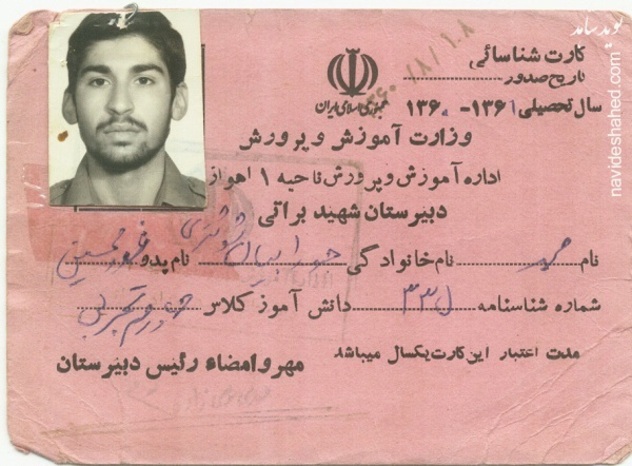 نوید شاهد
navideshahed.com
کارت شناسائی
تاریخ صدور
۱۳۶۰/۸/۱۰۸
جمهوری اسلامی ایران
سال تحصیلی ۱۳۶۱-۱۳۶۰
وزارت آموزش و پرورش
اداره آموزش و پرورش ناحیه ۱ اهواز
دبیرستان شهید براتی
نام نام خانوادگی شوشتری نام پدر غلامحسین
شماره شناسنامه ۳۳۵ دانش آموز کلاس دوم تجربی
مدت اعتبار این کارت یکسال میباشد
مهر و امضاء رئیس دبیرستان